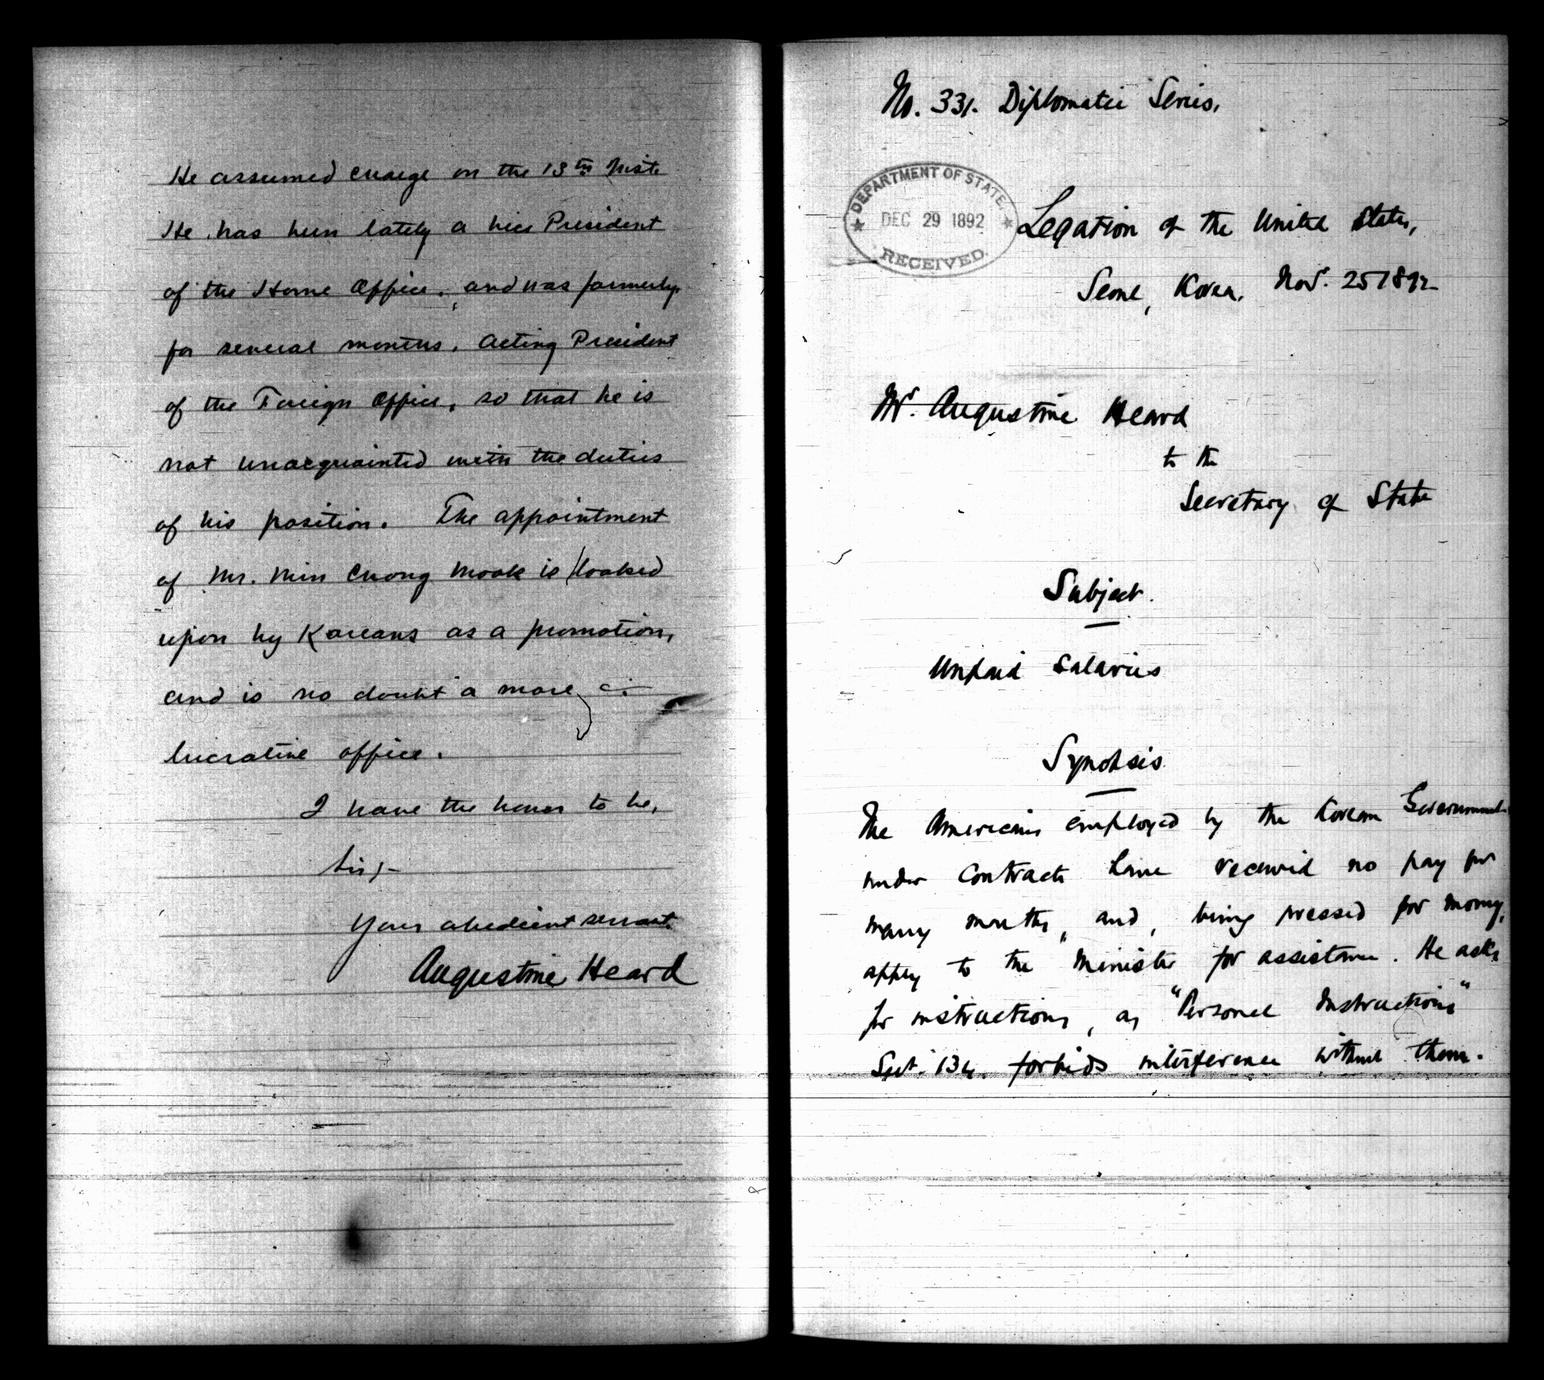 He assumed charge on the 13th inst.
He has been lately a vice President
of the Home Office, and was formerly,
for several months, Acting President
of the Foreign Office, so that he is
not unacquainted with the duties
of his position. The appointment
of Mr. Min Chong Mook is looked
upon by Koreans as a promotion,
and is no doubt a more
lucrative office.
I have the honor to be,
Sir,-
Your obedient servant
Augustine Heard
No. 331. Diplomatic Series.
DEPARTMENT OF STATE.
DEC 29 1892
RECEIVED.
Legation of the United States,
Seoul, Korea, Nov. 25 1892
Mr. Augustine Heard
to the
Secretary of State
Subject.
Unpaid Salaries
Synopsis
The Americans employed by the Korean Government
under contracts have received no pay for
many months, and, being pressed for money,
apply to the Minister for assistance. He asks
for instructions, as "Personal Instructions"
forbids interference without them.